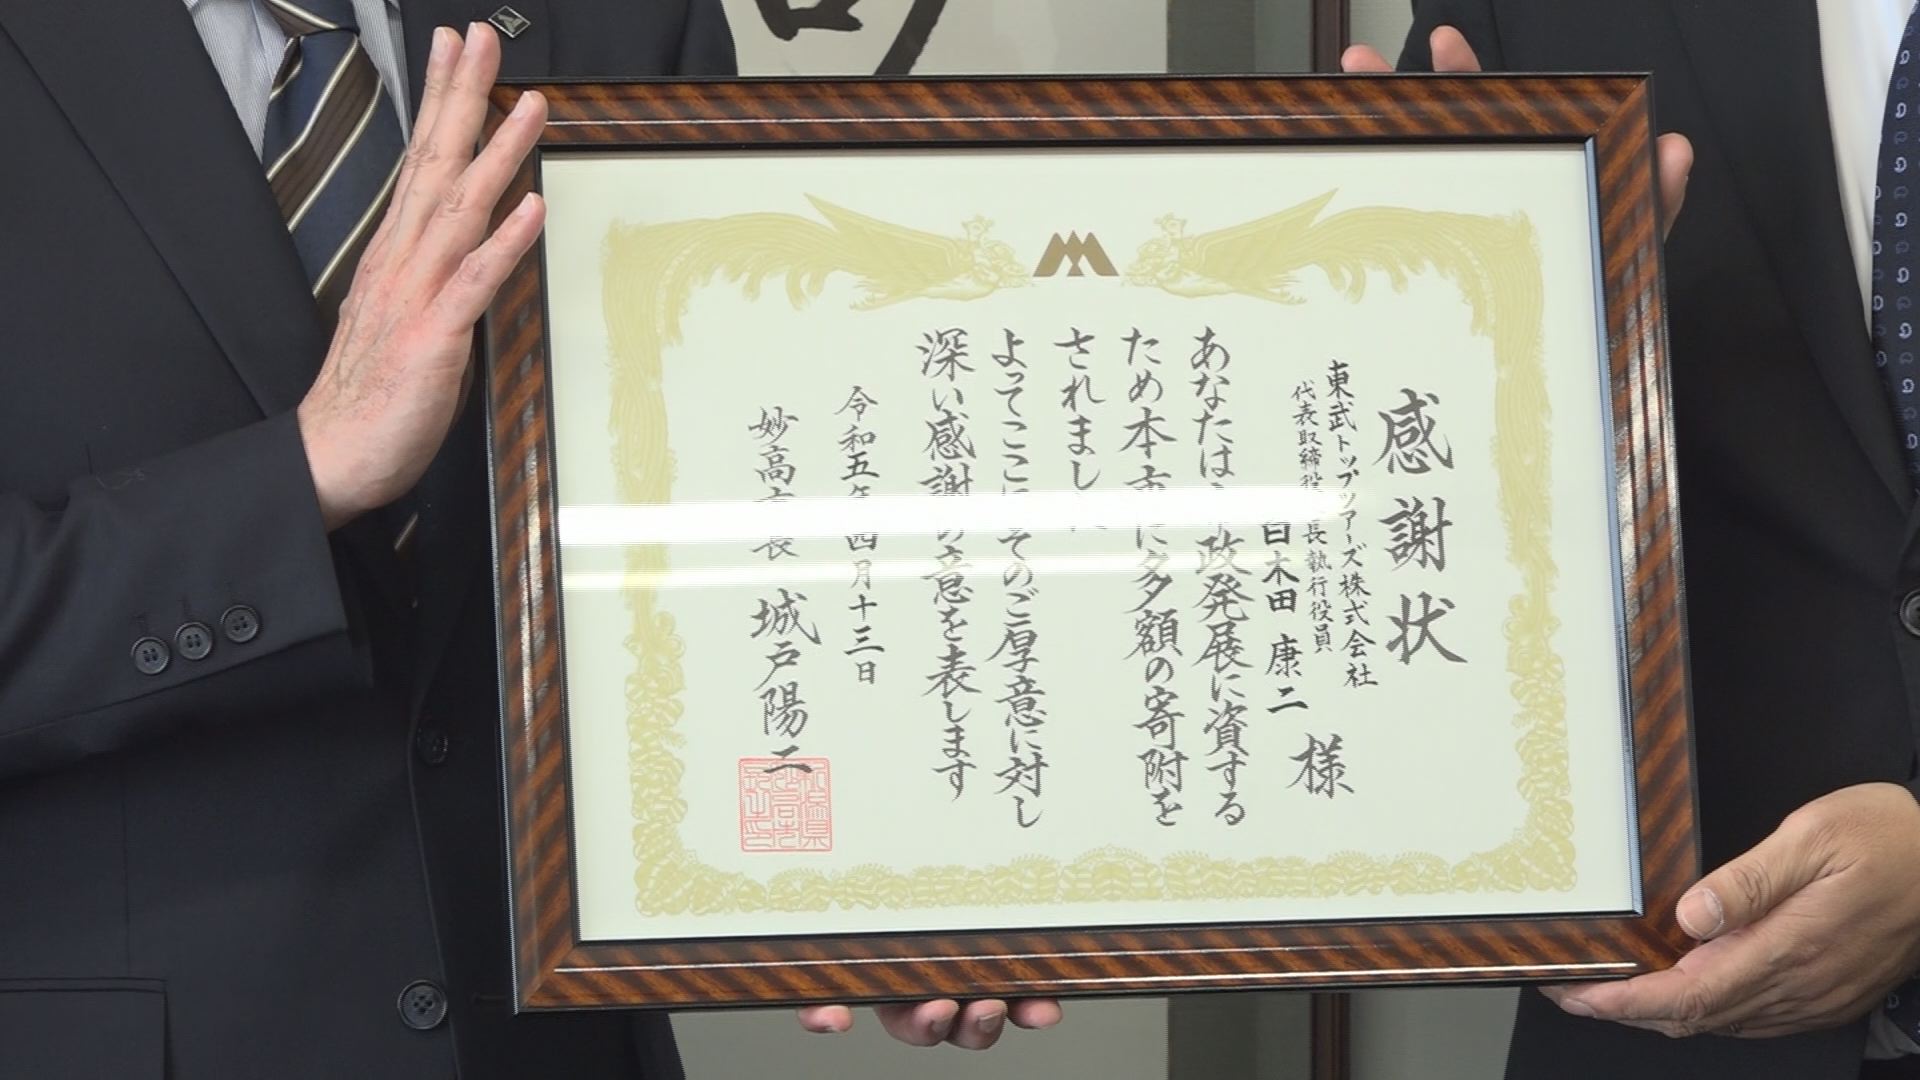 感謝状
東武トップツアーズ株式会社
代表取締役 長執行役員
百木田 康二 様
あなたは 政発展に資する
ため本市に多額の寄附を
されまし
よってここに そのご厚意に対し
深い感謝の意を表します
令和五年四月十三日
妙高市長 城戸陽二